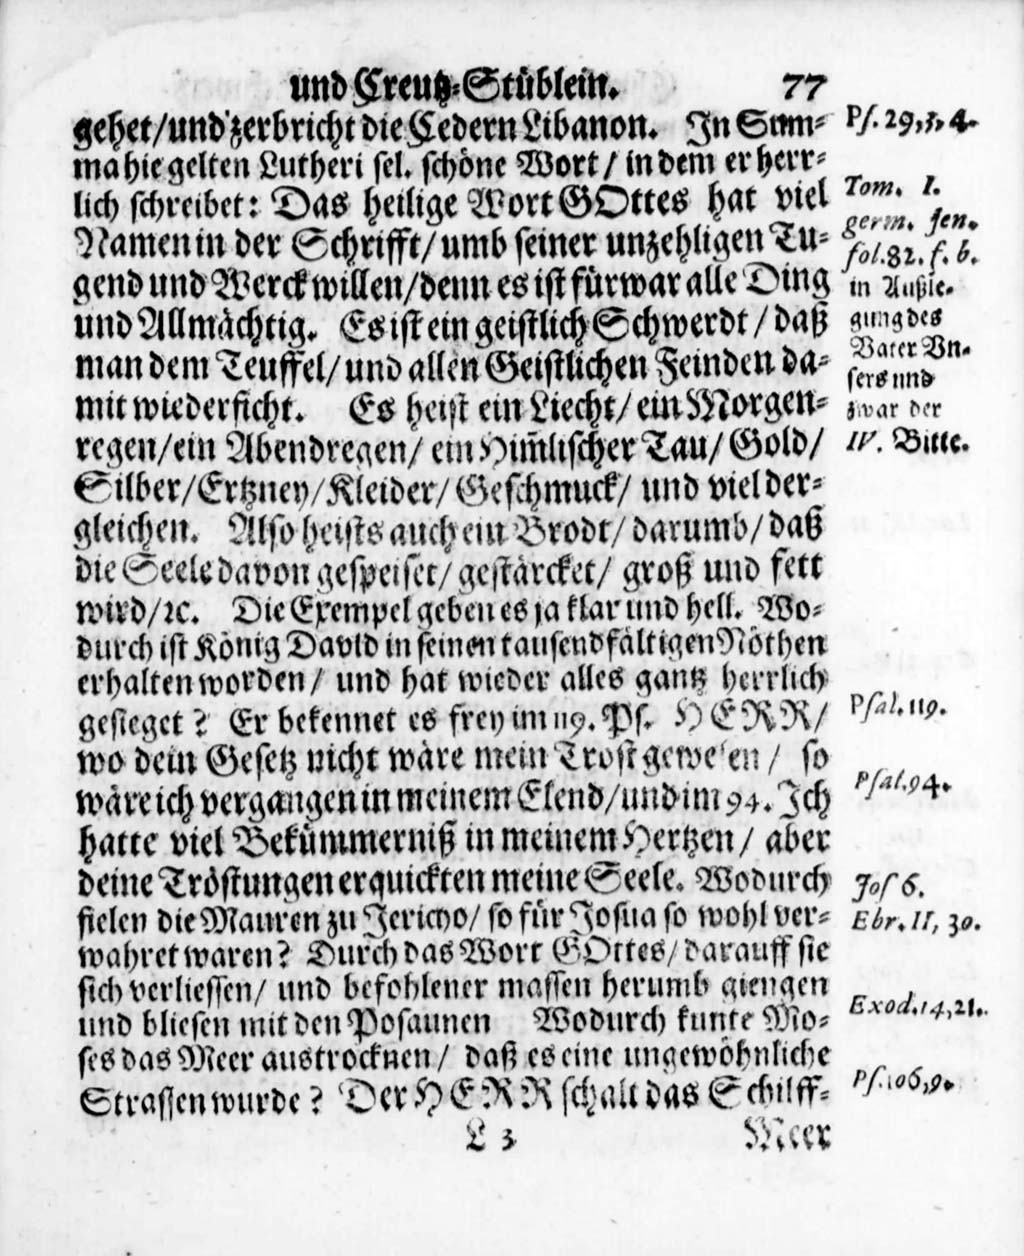 und Creutz-Stüblein. 77
gehet/und zerbricht die Cedern Libanon. In Sum-
ma hie gelten Lutheri sel. schöne Wort/ in dem er herr-
lich schreibet: Das heilige Wort GOttes hat viel
Namen in der Schrifft/ umb seiner unzehligen Tu-
gend und Werck willen/denn es ist fürwar alle Ding
und Allmächtig. Es ist ein geistlich Schwerdt/ daß
man dem Teuffel/ und allen Geistlichen Feinden da-
mit wiederficht. Es heist ein Liecht/ ein Morgen-
regen/ein Abendregen/ ein Him̄lischer Tau/ Gold/
Silber/Ertzney/Kleider/ Geschmuck/ und viel der-
gleichen. Also heists auch ein Brodt/ darumb/ daß
die Seele davon gespeiset/ gestärcket/ groß und fett
wird/ꝛc. Die Exempel geben es ja klar und hell. Wo-
durch ist König David in seinen tausendfältigen Nöthen
erhalten worden/ und hat wieder alles gantz herrlich
gesieget? Er bekennet es frey im 119. Ps. HERR/
wo dein Gesetz nicht wäre mein Trost gewesen/ so
wäre ich vergangen in meinem Elend/und im 94. Ich
hatte viel Bekümmerniß in meinem Hertzen/ aber
deine Tröstungen erquickten meine Seele. Wodurch
fielen die Mauren zu Jericho/ so für Josua so wohl ver-
wahret waren? Durch das Wort GOttes/ darauff sie
sich verliessen/ und befohlener massen herumb giengen
und bliesen mit den Posaunen Wodurch kunte Mo-
ses das Meer austrocknen/ daß es eine ungewöhnliche
Strassen wurde? Der HERR schalt das Schilff-
L 3 Meer
Ps. 29,5,4.
Tom. I.
germ. Jen.
fol.82. f. b.
in Außle-
gung des
Vater Vn-
sers und
zwar der
IV. Bitte.
Psal. 119.
Psal. 94.
Jos 6.
Ebr. II, 30.
Exod. 14,21.
Ps. 106,9.